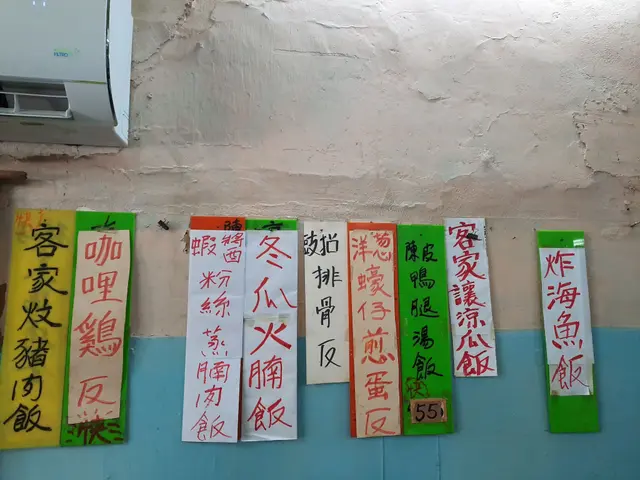 客家炆豬肉飯
咖哩鷄反
快
蝦醬粉絲蒸腩肉飯
冬瓜火腩飯
豉招排骨反
洋葱蠔仔煎蛋反
陳皮鴨腿湯飯
快
55
客家讓涼瓜飯
炸海魚飯